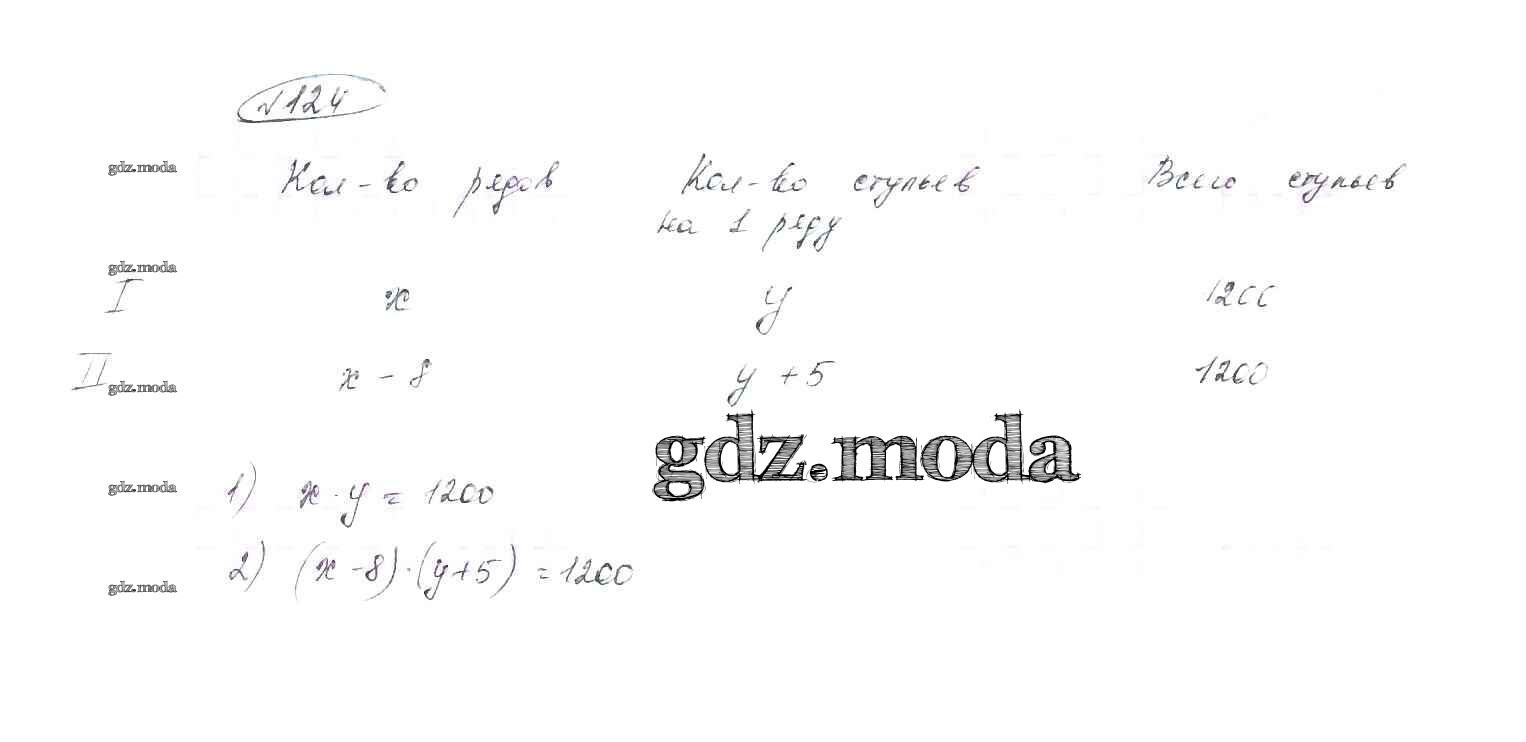 №124
gdz.moda
Кол-во рядов Кол-во стульев Всего стульев
на 1 ряду
gdz.moda
I x y 1200
II x - 8 y + 5 1200
gdz.moda
gdz.moda
gdz.moda
1) x · y = 1200
2) (x - 8) · (y + 5) = 1200
gdz.moda